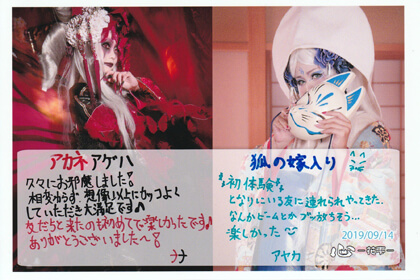 アカネ アゲハ
久々にお邪魔しました!
相変わらず、想像以上にカッコよく
していただき大満足です♪
友だちと来たのも初めてで楽しかったです♪
ありがとうございました〜!
ナナ
狐の嫁入り
初体験
となりにいる友に連れられやってきた。
なんかビームとかブッ放ちそう…
楽しかった
アヤカ
2019/09/14
心